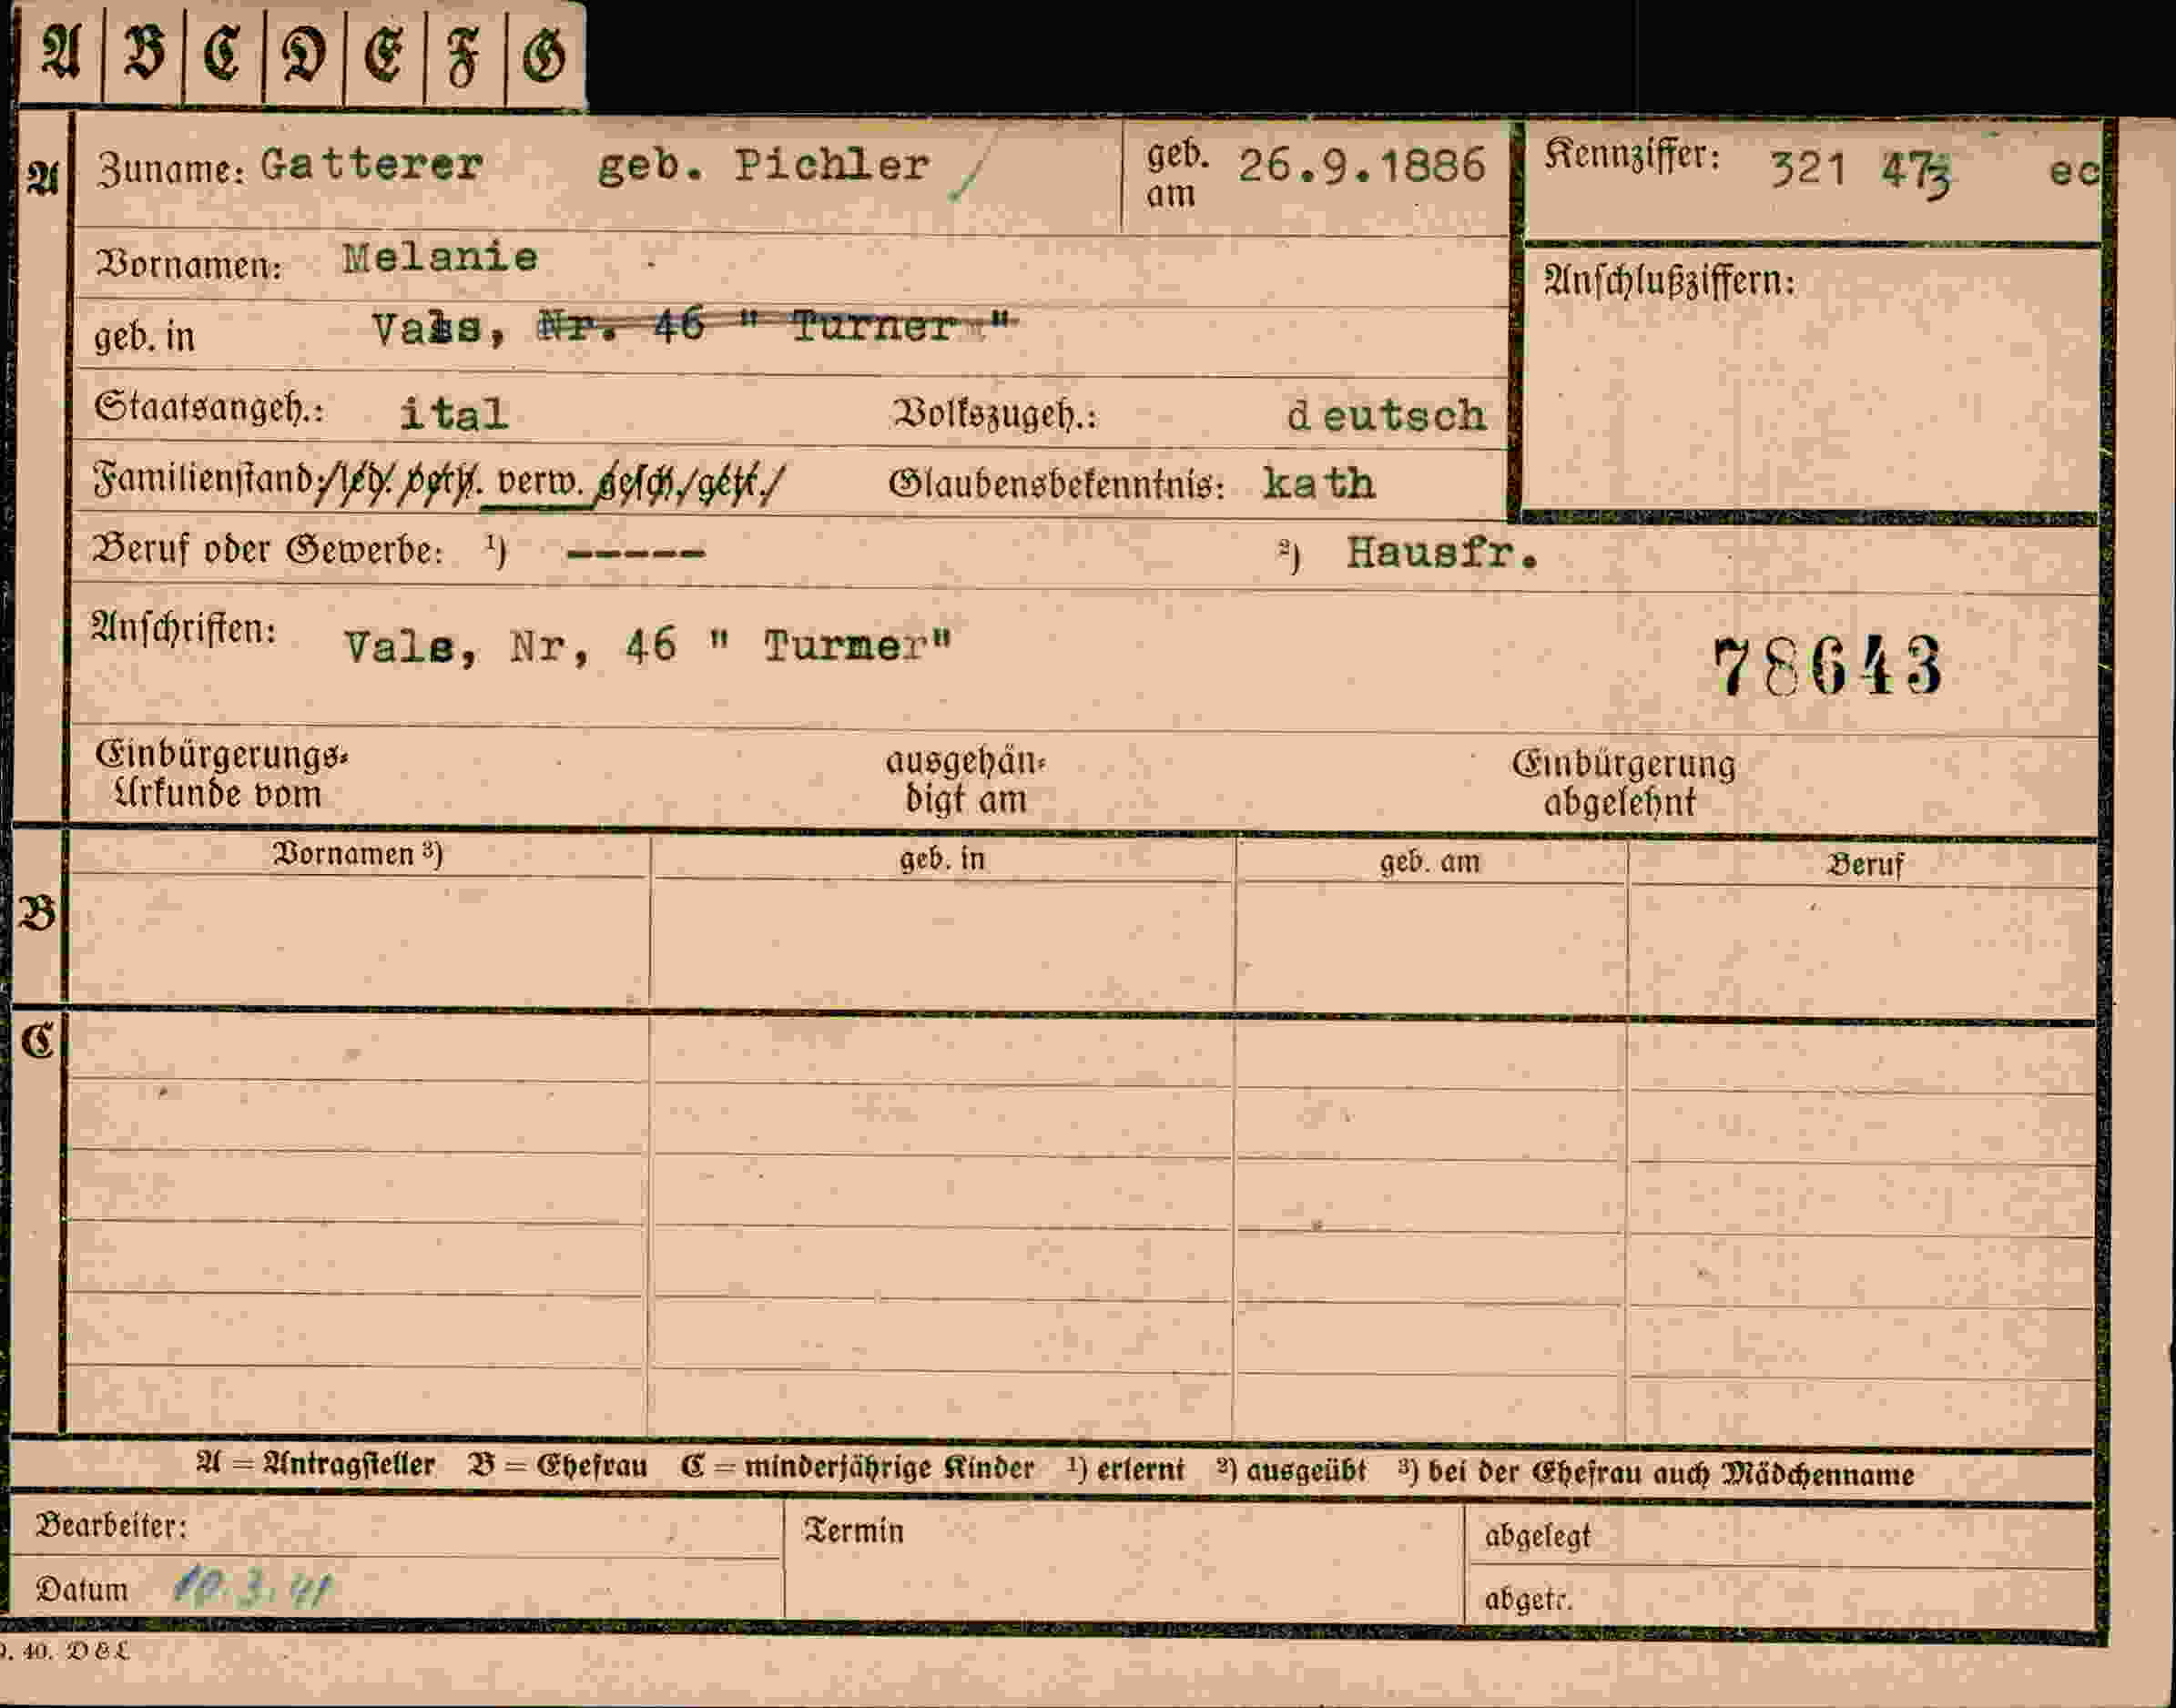 A B C D E F G
A Zuname: Gatterer geb. Pichler / geb. am 26.9.1886 Kennziffer: 321 473 ec
Vornamen: Melanie
Anschlußziffern:
geb. in Vals, Nr. 46 " Turner "
Staatsangeh.: ital Volkszugeh.: deutsch
Familienstand: led. verh. verw. gesch. getr. Glaubensbekenntnis: kath
Beruf oder Gewerbe: ¹) ----- ²) Hausfr.
Anschriften: Vals, Nr, 46 " Turmer"
78643
Einbürgerungs-
Urkunde vom
ausgehän-
digt am
Einbürgerung
abgelehnt
Vornamen ³) geb. in geb. am Beruf
B
C
A = Antragsteller B = Ehefrau C = minderjährige Kinder ¹) erlernt ²) ausgeübt ³) bei der Ehefrau auch Mädchenname
Bearbeiter: Termin abgelegt
Datum 10.3.41 abgetr.
40. D&L